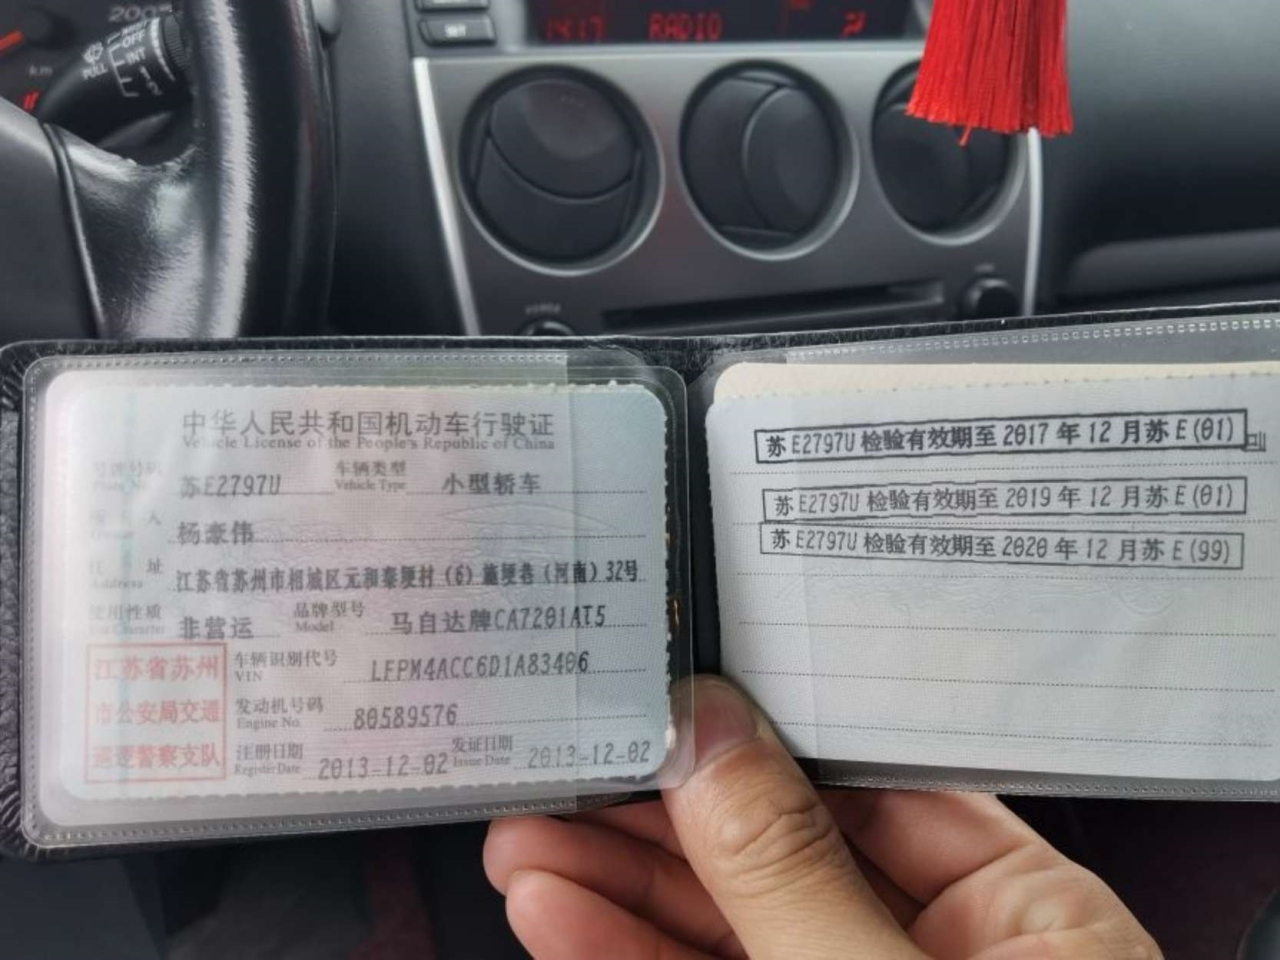 200
km
PULL
OFF
INT
1
2
SET
14:17 RADIO
中华人民共和国机动车行驶证
Vehicle License of the People's Republic of China
号牌号码 苏E2797U 车辆类型 小型轿车
Plate No. Vehicle Type
所有人 杨豪伟
Owner
住址 江苏省苏州市相城区元和泰埂村（6）施埂巷（河南）32号
Address
使用性质 非营运 品牌型号 马自达牌CA7201AT5
Use Character Model
车辆识别代号 LFPM4ACC6D1A83406
VIN
发动机号码 80589576
Engine No.
注册日期 2013-12-02 发证日期 2013-12-02
Register Date Issue Date
江苏省苏州
市公安局交通
巡逻警察支队
苏E2797U检验有效期至2017年12月苏E(01)
苏E2797U检验有效期至2019年12月苏E(01)
苏E2797U检验有效期至2020年12月苏E(99)